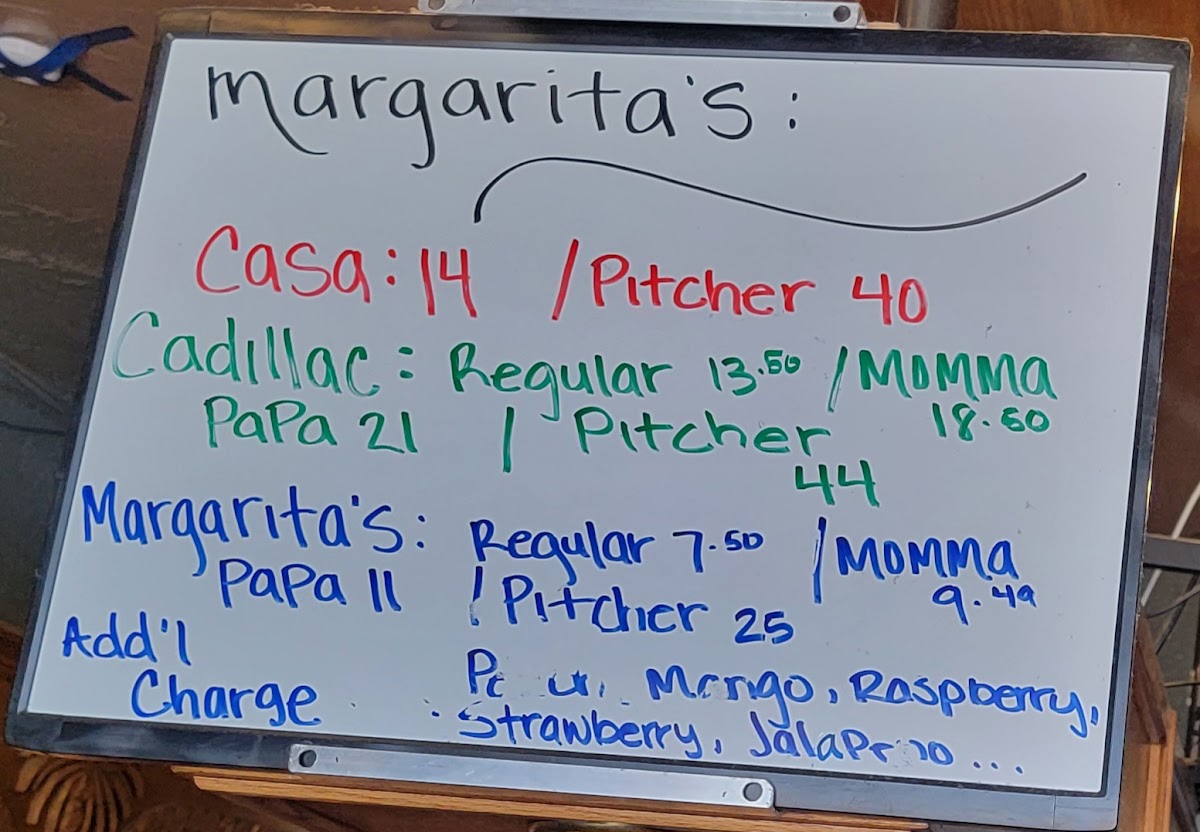 Margarita's:
Casa: 14 / Pitcher 40
Cadillac: Regular 13.50 / MOMMA
PaPa 21 / Pitcher 18.50
44
Margarita's: Regular 7.50 / MOMMA
PaPa 11 / Pitcher 25 9.49
Add'l
Charge Mango, Raspberry,
Strawberry, Jalapeno ...